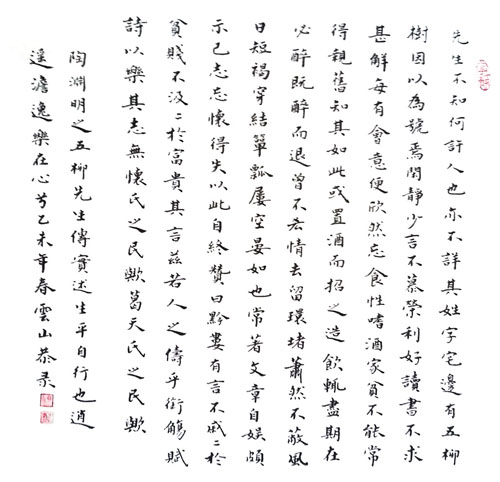 先生不知何許人也亦不詳其姓字宅邊有五柳
樹因以為號焉閑靜少言不慕榮利好讀書不求
甚解每有會意便欣然忘食性嗜酒家貧不能常
得親舊知其如此或置酒而招之造飲輒盡期在
必醉既醉而退曾不吝情去留環堵蕭然不蔽風
日短褐穿結簞瓢屢空晏如也常著文章自娛頗
示己志忘懷得失以此自終贊曰黔婁有言不戚々於
貧賤不汲々於富貴其言茲若人之儔乎銜觴賦
詩以樂其志無懷氏之民歟葛天氏之民歟
陶淵明之五柳先生傳實述生平自行也逍
遙澹逸樂在心兮乙未年春雲山恭录